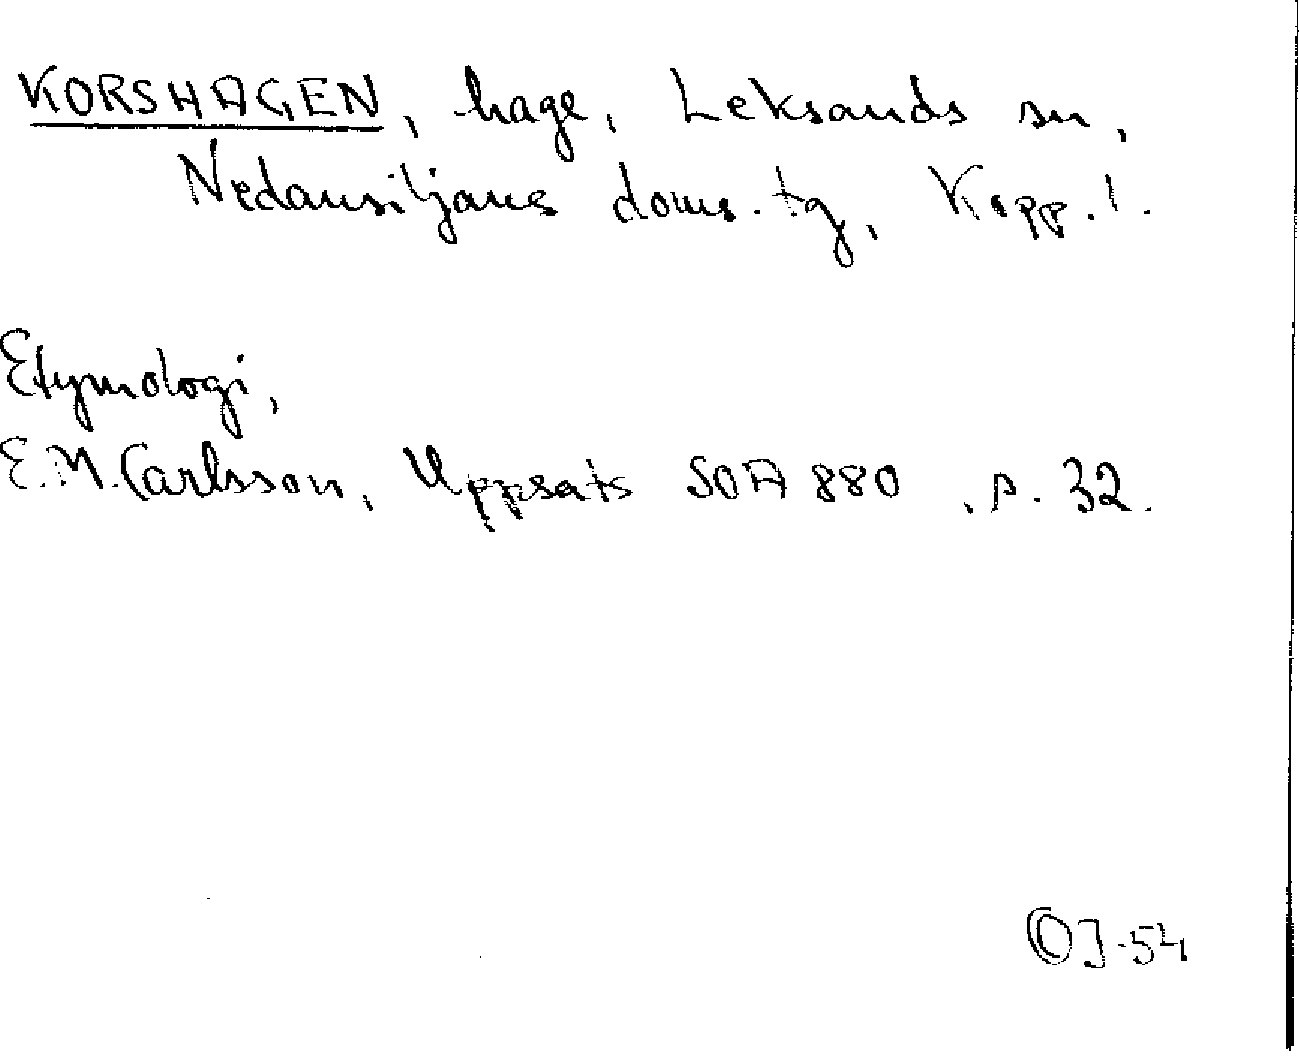 KORSHAGEN, hage, Leksands sn,
Nedansiljans doms.tg, Kopp.l.
Etymologi,
E.M. Carlsson, Uppsats SOA 880, s. 32.
OJ-54